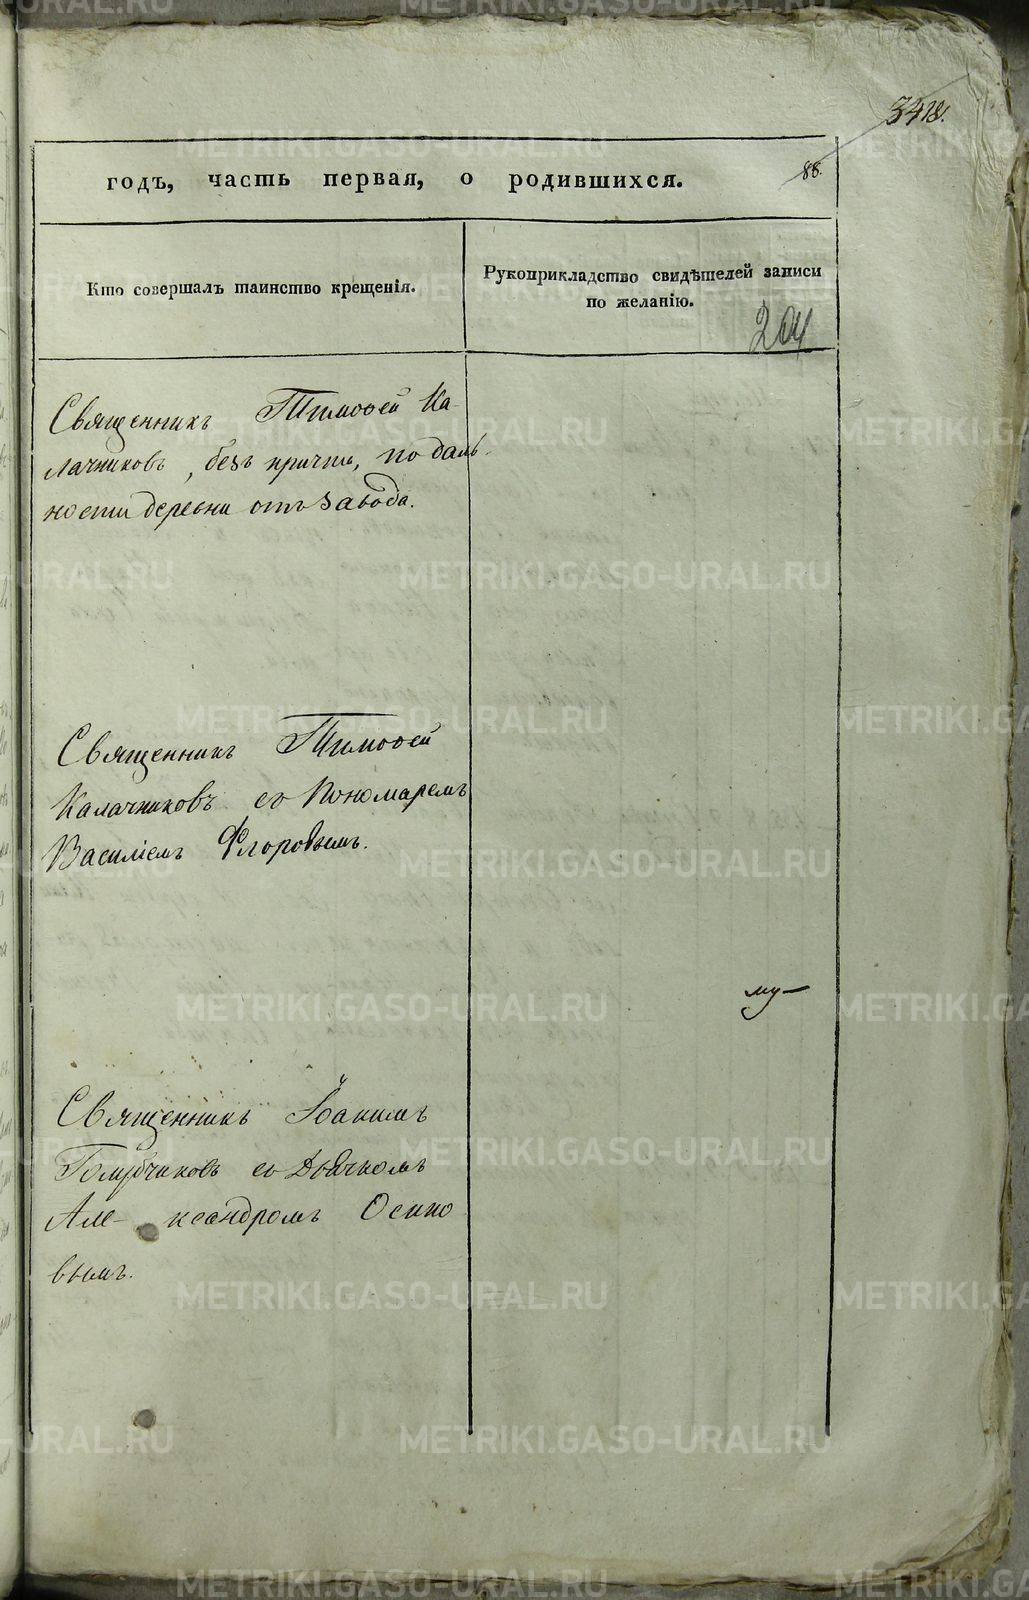 3418.
88.
годъ, часть первая, о родившихся.
Кто совершалъ таинство крещенія.
Рукоприкладство свидѣтелей записи
по желанію.
204
Священникъ Тимоѳей Ка-
лачниковъ, безъ причта, по даль-
ности деревни отъ завода.
Священникъ Тимоѳей
Калачниковъ со Пономаремъ
Василіемъ Флоровымъ.
му-
Священникъ Іоакимъ
со Дьячкомъ
Але- ксандромъ Осипо
вымъ.
METRIKI.GASO-URAL.RU